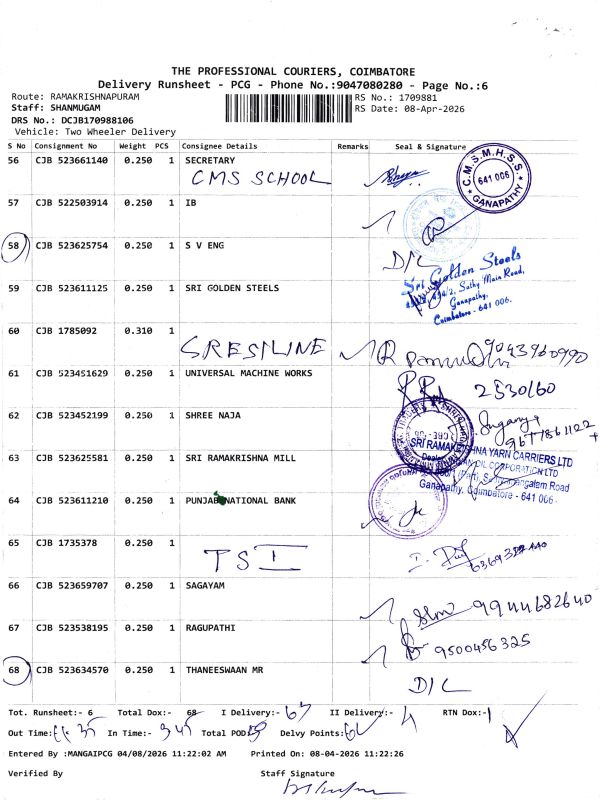 THE PROFESSIONAL COURIERS, COIMBATORE
Delivery Runsheet - PCG - Phone No.:9047080280 - Page No.:6
Route: RAMAKRISHNAPURAM
RS No.: 1709881
Staff: SHANMUGAM
RS Date: 08-Apr-2026
DRS No.: DCJB170988106
Vehicle: Two Wheeler Delivery
S No Consignment No Weight PCS Consignee Details Remarks Seal & Signature
56 CJB 523661140 0.250 1 SECRETARY
CMS SCHOOL
C.M.S.M.H.S.S
641 006
GANAPATHY
57 CJB 522503914 0.250 1 IB
58 CJB 523625754 0.250 1 S V ENG
D/L
59 CJB 523611125 0.250 1 SRI GOLDEN STEELS
Sri Golden Steels
Sathy Main Road,
Ganapathy,
Coimbatore - 641 006.
60 CJB 1785092 0.310 1
9043960990
61 CJB 523451629 0.250 1 UNIVERSAL MACHINE WORKS
2530160
62 CJB 523452199 0.250 1 SHREE NAJA
63 CJB 523625581 0.250 1 SRI RAMAKRISHNA MILL
SRI RAMAKRISHNA YARN CARRIERS LTD
OIL CORPORATION LTD
Ganapathy, Coimbatore - 641 006
64 CJB 523611210 0.250 1 PUNJAB NATIONAL BANK
65 CJB 1735378 0.250 1
TSI
66 CJB 523659707 0.250 1 SAGAYAM
9944682640
67 CJB 523538195 0.250 1 RAGUPATHI
9500456325
68 CJB 523634570 0.250 1 THANEESWAAN MR
D/L
Tot. Runsheet:- 6 Total Dox:- 68 I Delivery:- 63 II Delivery:- 4 RTN Dox:- 1
Out Time: In Time:- 345 Total POD: Delvy Points:
Entered By :MANGAIPCG 04/08/2026 11:22:02 AM Printed On: 08-04-2026 11:22:26
Verified By Staff Signature